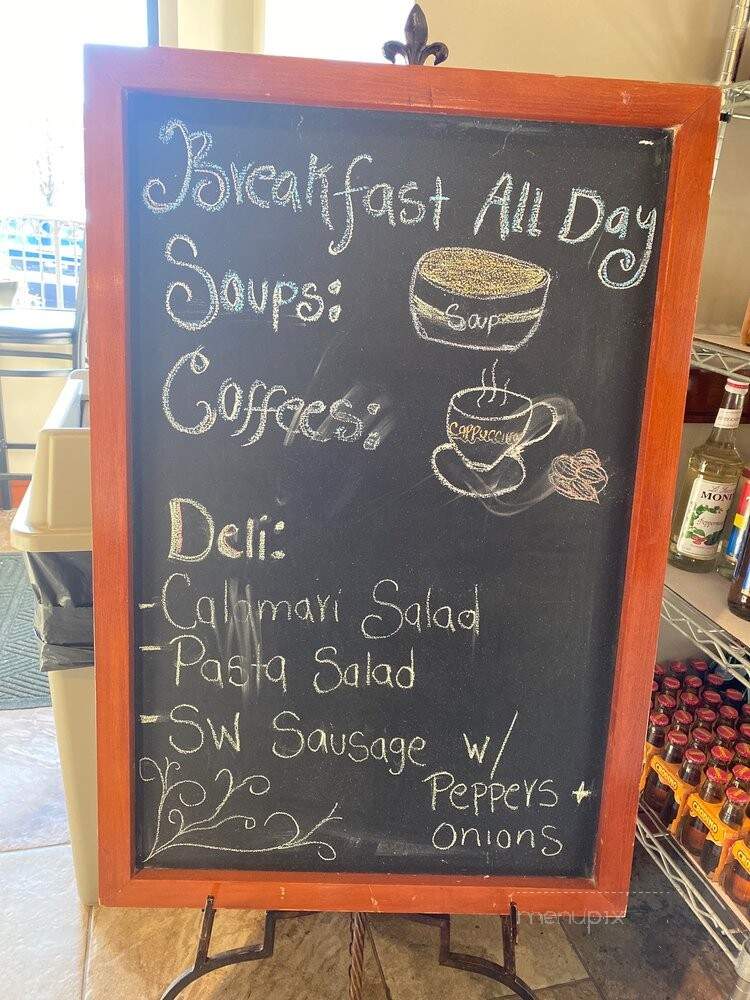 Breakfast All Day
Soups:
Soup
Coffees:
Cappuccino
Deli:
- Calamari Salad
- Pasta Salad
- SW Sausage w/
Peppers +
onions
MONI
menupix